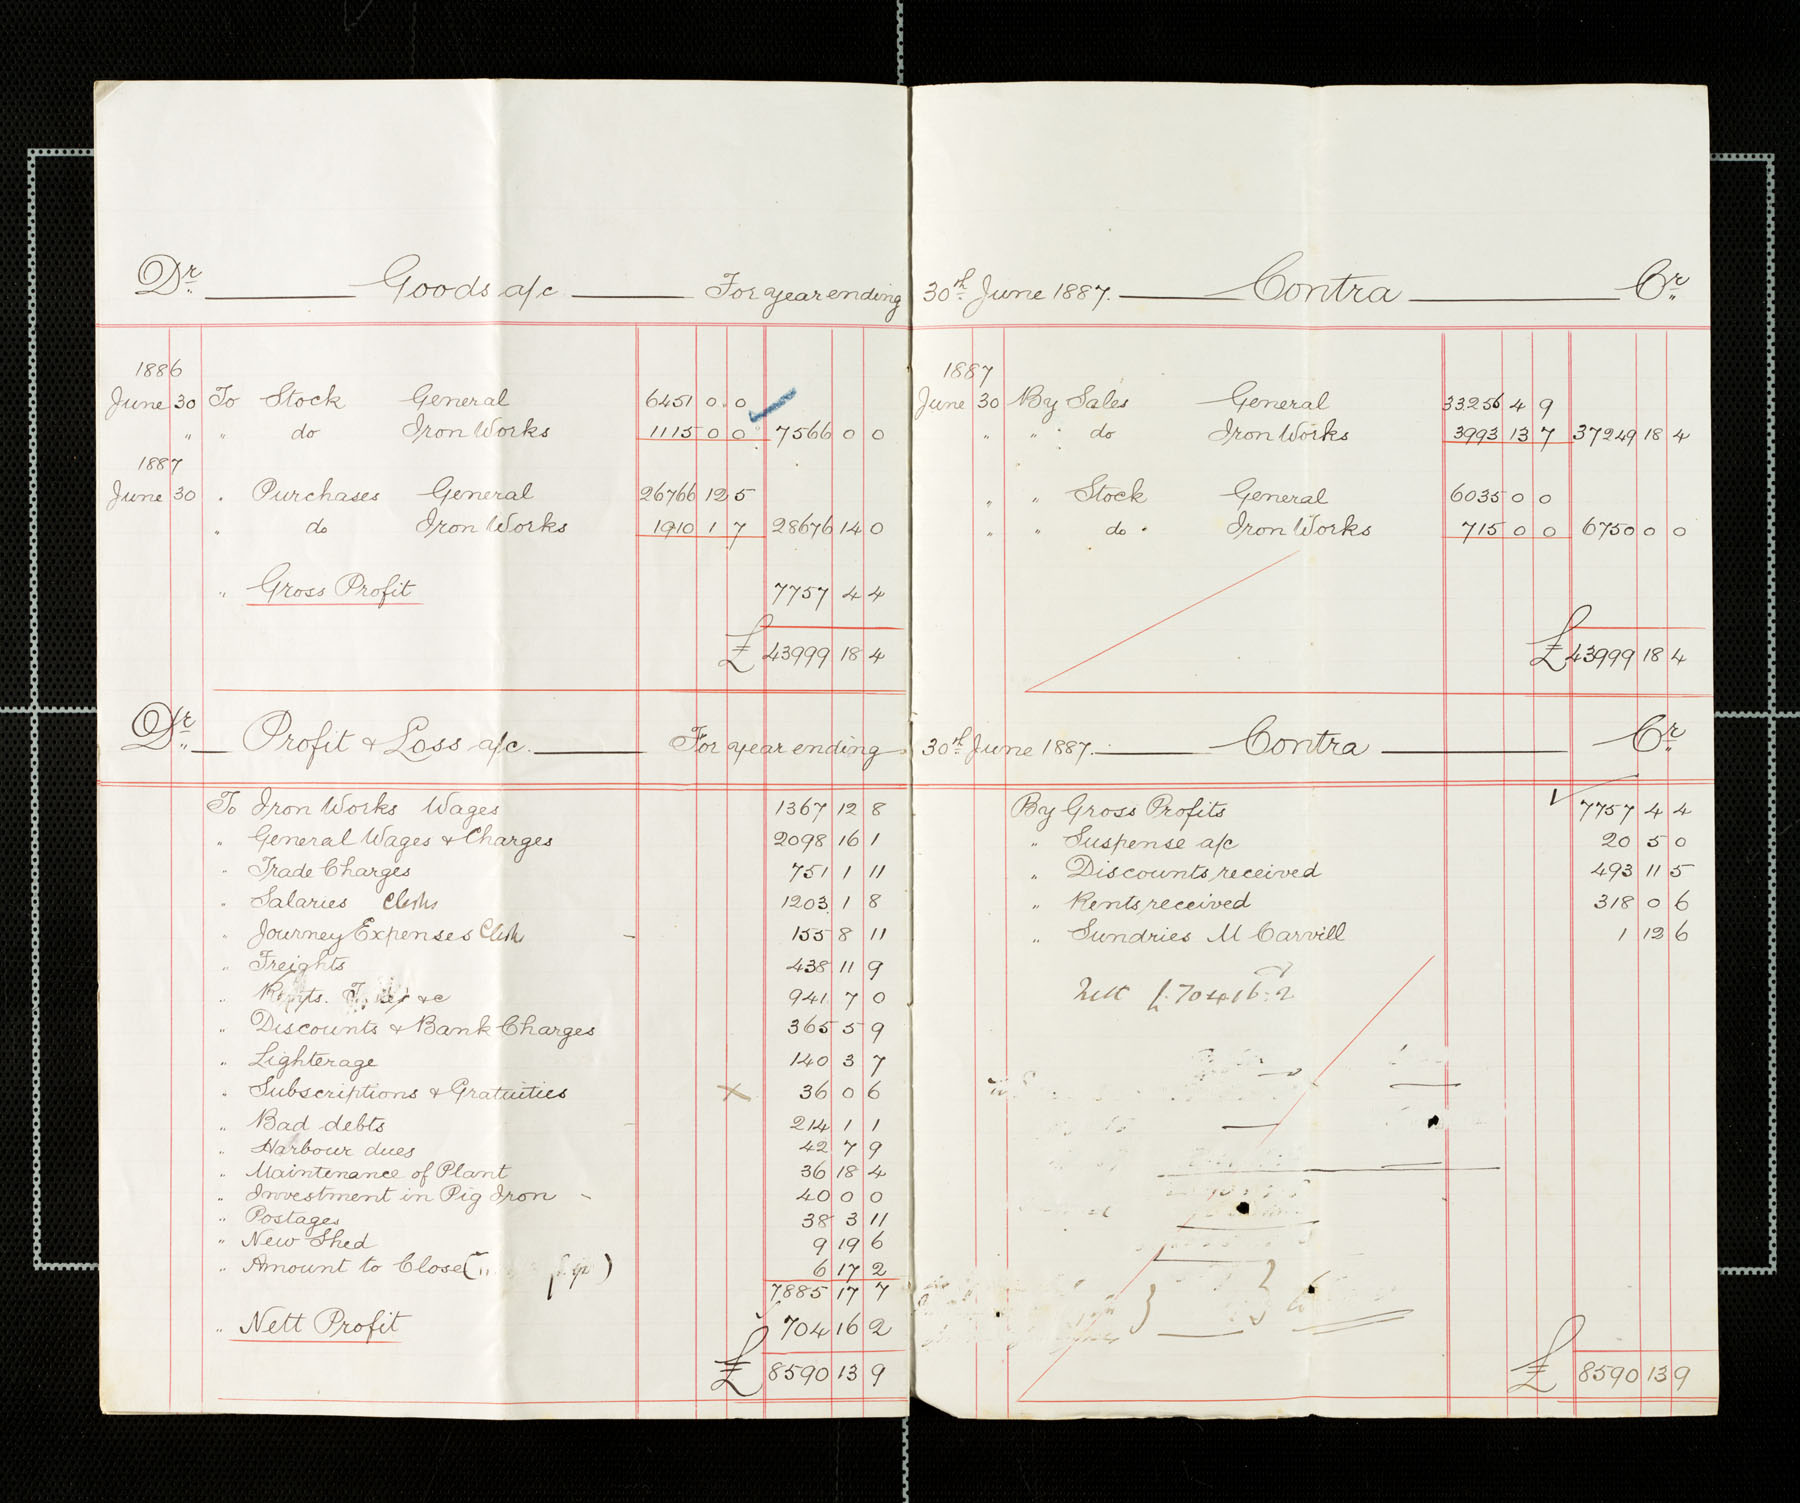 Dr. Goods a/c For year ending 30th June 1887. Contra Cr.
1886
June 30 To Stock General 6451 0 0
" " do Iron Works 1115 0 0 7566 0 0
1887
June 30 " Purchases General 26766 12 5
" do Iron Works 1910 1 7 28676 14 0
" Gross Profit 7757 4 4
£ 43999 18 4
1887
June 30 By Sales General 33256 4 9
" " do Iron Works 3993 13 7 37249 18 4
" " Stock General 6035 0 0
" " do Iron Works 715 0 0 6750 0 0
£ 43999 18 4
Dr. Profit & Loss a/c. For year ending 30th June 1887. Contra Cr.
To Iron Works Wages 1367 12 8
" General Wages & Charges 2098 16 1
" Trade Charges 751 1 11
" Salaries Clerks 1203 1 8
" Journey Expenses Clerk 155 8 11
" Freights 438 11 9
" &c 941 7 0
" Discounts & Bank Charges 365 5 9
" Lighterage 140 3 7
" Subscriptions & Gratuities x 36 0 6
" Bad debts 214 1 1
" Harbour dues 42 7 9
" Maintenance of Plant 36 18 4
" Investment in Pig Iron 40 0 0
" Postages 38 3 11
" New Shed 9 19 6
" Amount to Close 6 17 2
7885 17 7
" Nett Profit 704 16 2
£ 8590 13 9
By Gross Profits 7757 4 4
" Suspense a/c 20 5 0
" Discounts received 493 11 5
" Rents received 318 0 6
" Sundries M Carvill 1 12 6
Nett £704 16 2
£ 8590 13 9